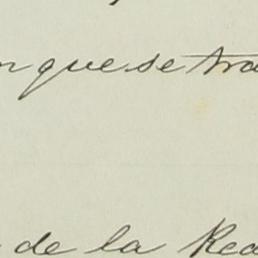 n que se tra
de la Rea